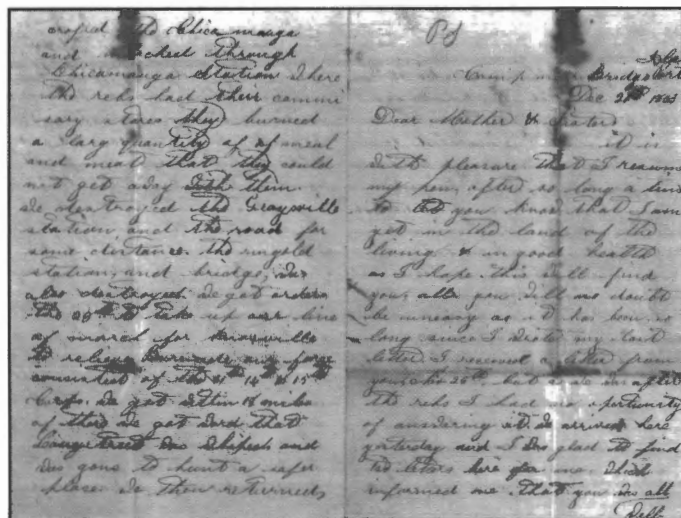 crossed the Chicamauga
and marched through
Chicamauga Station where
the rebs had their commi
sary stores they burned
a larg quantity of of meal
and meat that they could
not get away with them
we destroyed the Graysville
station and the road for
some distance. the ringold
station, and bridge, was
also destroyed we got orders
the 29th to take up our line
of march for Knoxville
to relieve Burnside our force
consisted of the 4th 14th & 15th
Corps. we got within 18 miles
of there we got word that
Longstreet was whiped and
was gone to hunt a safer
place we then returned
PS
Camp near Bridgeport
Dec 20th 1863
Dear Mother & sister
it is
with pleasure that I resume
my pen, after so long a time
to let you know that I am
yet in the land of the
living & in good health
as I hope this will find
you all you will no doubt
be uneasy as it has been so
long since I wrote my last
letter. I received a letter from
you Nov 25th, but as we was after
the rebs I had no opertunity
of answering it. we arrived here
yesterday and I was glad to find
two letters here for me. which
informed me that you was all
Well